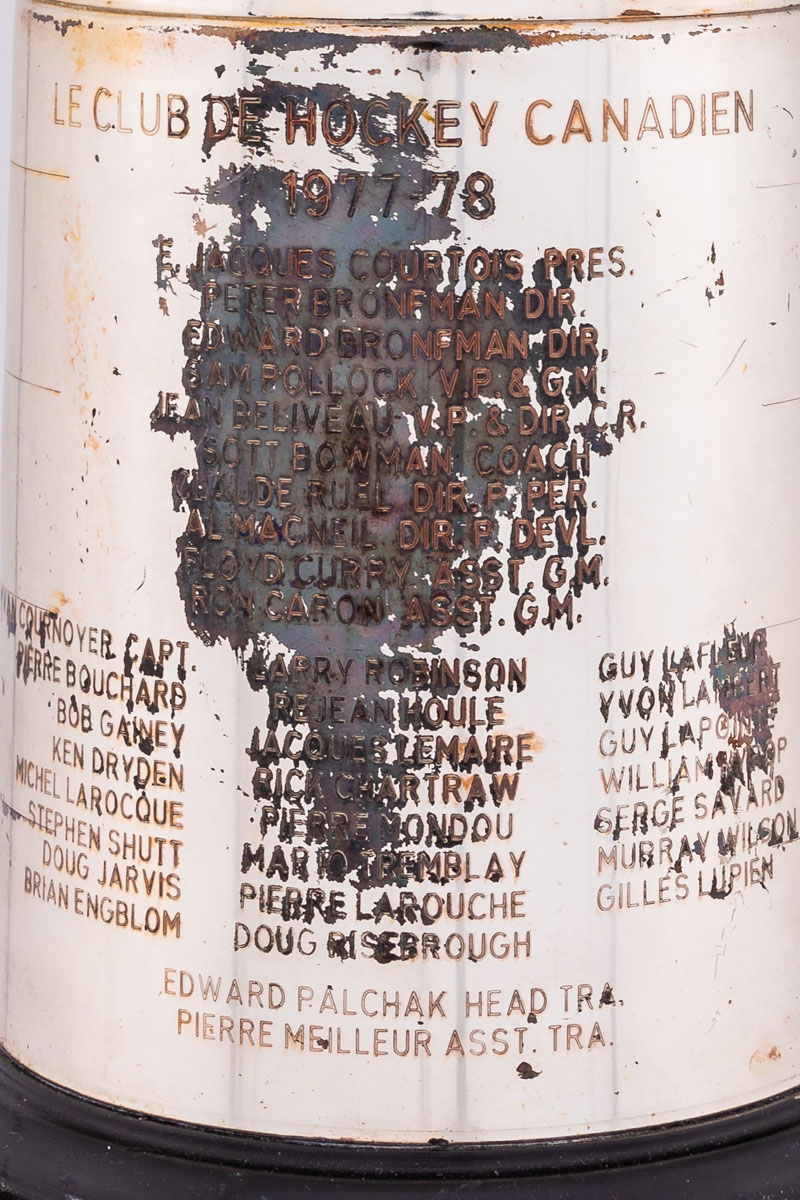 LE CLUB DE HOCKEY CANADIEN
1977-78
E. JACQUES COURTOIS PRES.
PETER BRONFMAN DIR.
EDWARD BRONFMAN DIR,
SAM POLLOCK V.P. & G.M.
JEAN BELIVEAU V.P. & DIR.C.R.
SOTT BOWMAN COACH
CLAUDE RUEL DIR. P. PER.
AL MACNEIL DIR. P. DEVL.
FLOYD CURRY ASST. G.M.
RON CARON ASST. G.M.
YVAN COURNOYER CAPT.
PIERRE BOUCHARD
BOB GAINEY
KEN DRYDEN
MICHEL LAROCQUE
STEPHEN SHUTT
DOUG JARVIS
BRIAN ENGBLOM
LARRY ROBINSON
REJEAN HOULE
JACQUES LEMAIRE
RICK CHARTRAW
PIERRE MONDOU
MARIO TREMBLAY
PIERRE LAROUCHE
DOUG RISEBROUGH
GUY LAFLEUR
YVON LAMBERT
GUY LAPOINTE
WILLIAM NYROP
SERGE SAVARD
MURRAY WILSON
GILLES LUPIEN
EDWARD PALCHAK HEAD TRA.
PIERRE MEILLEUR ASST. TRA.